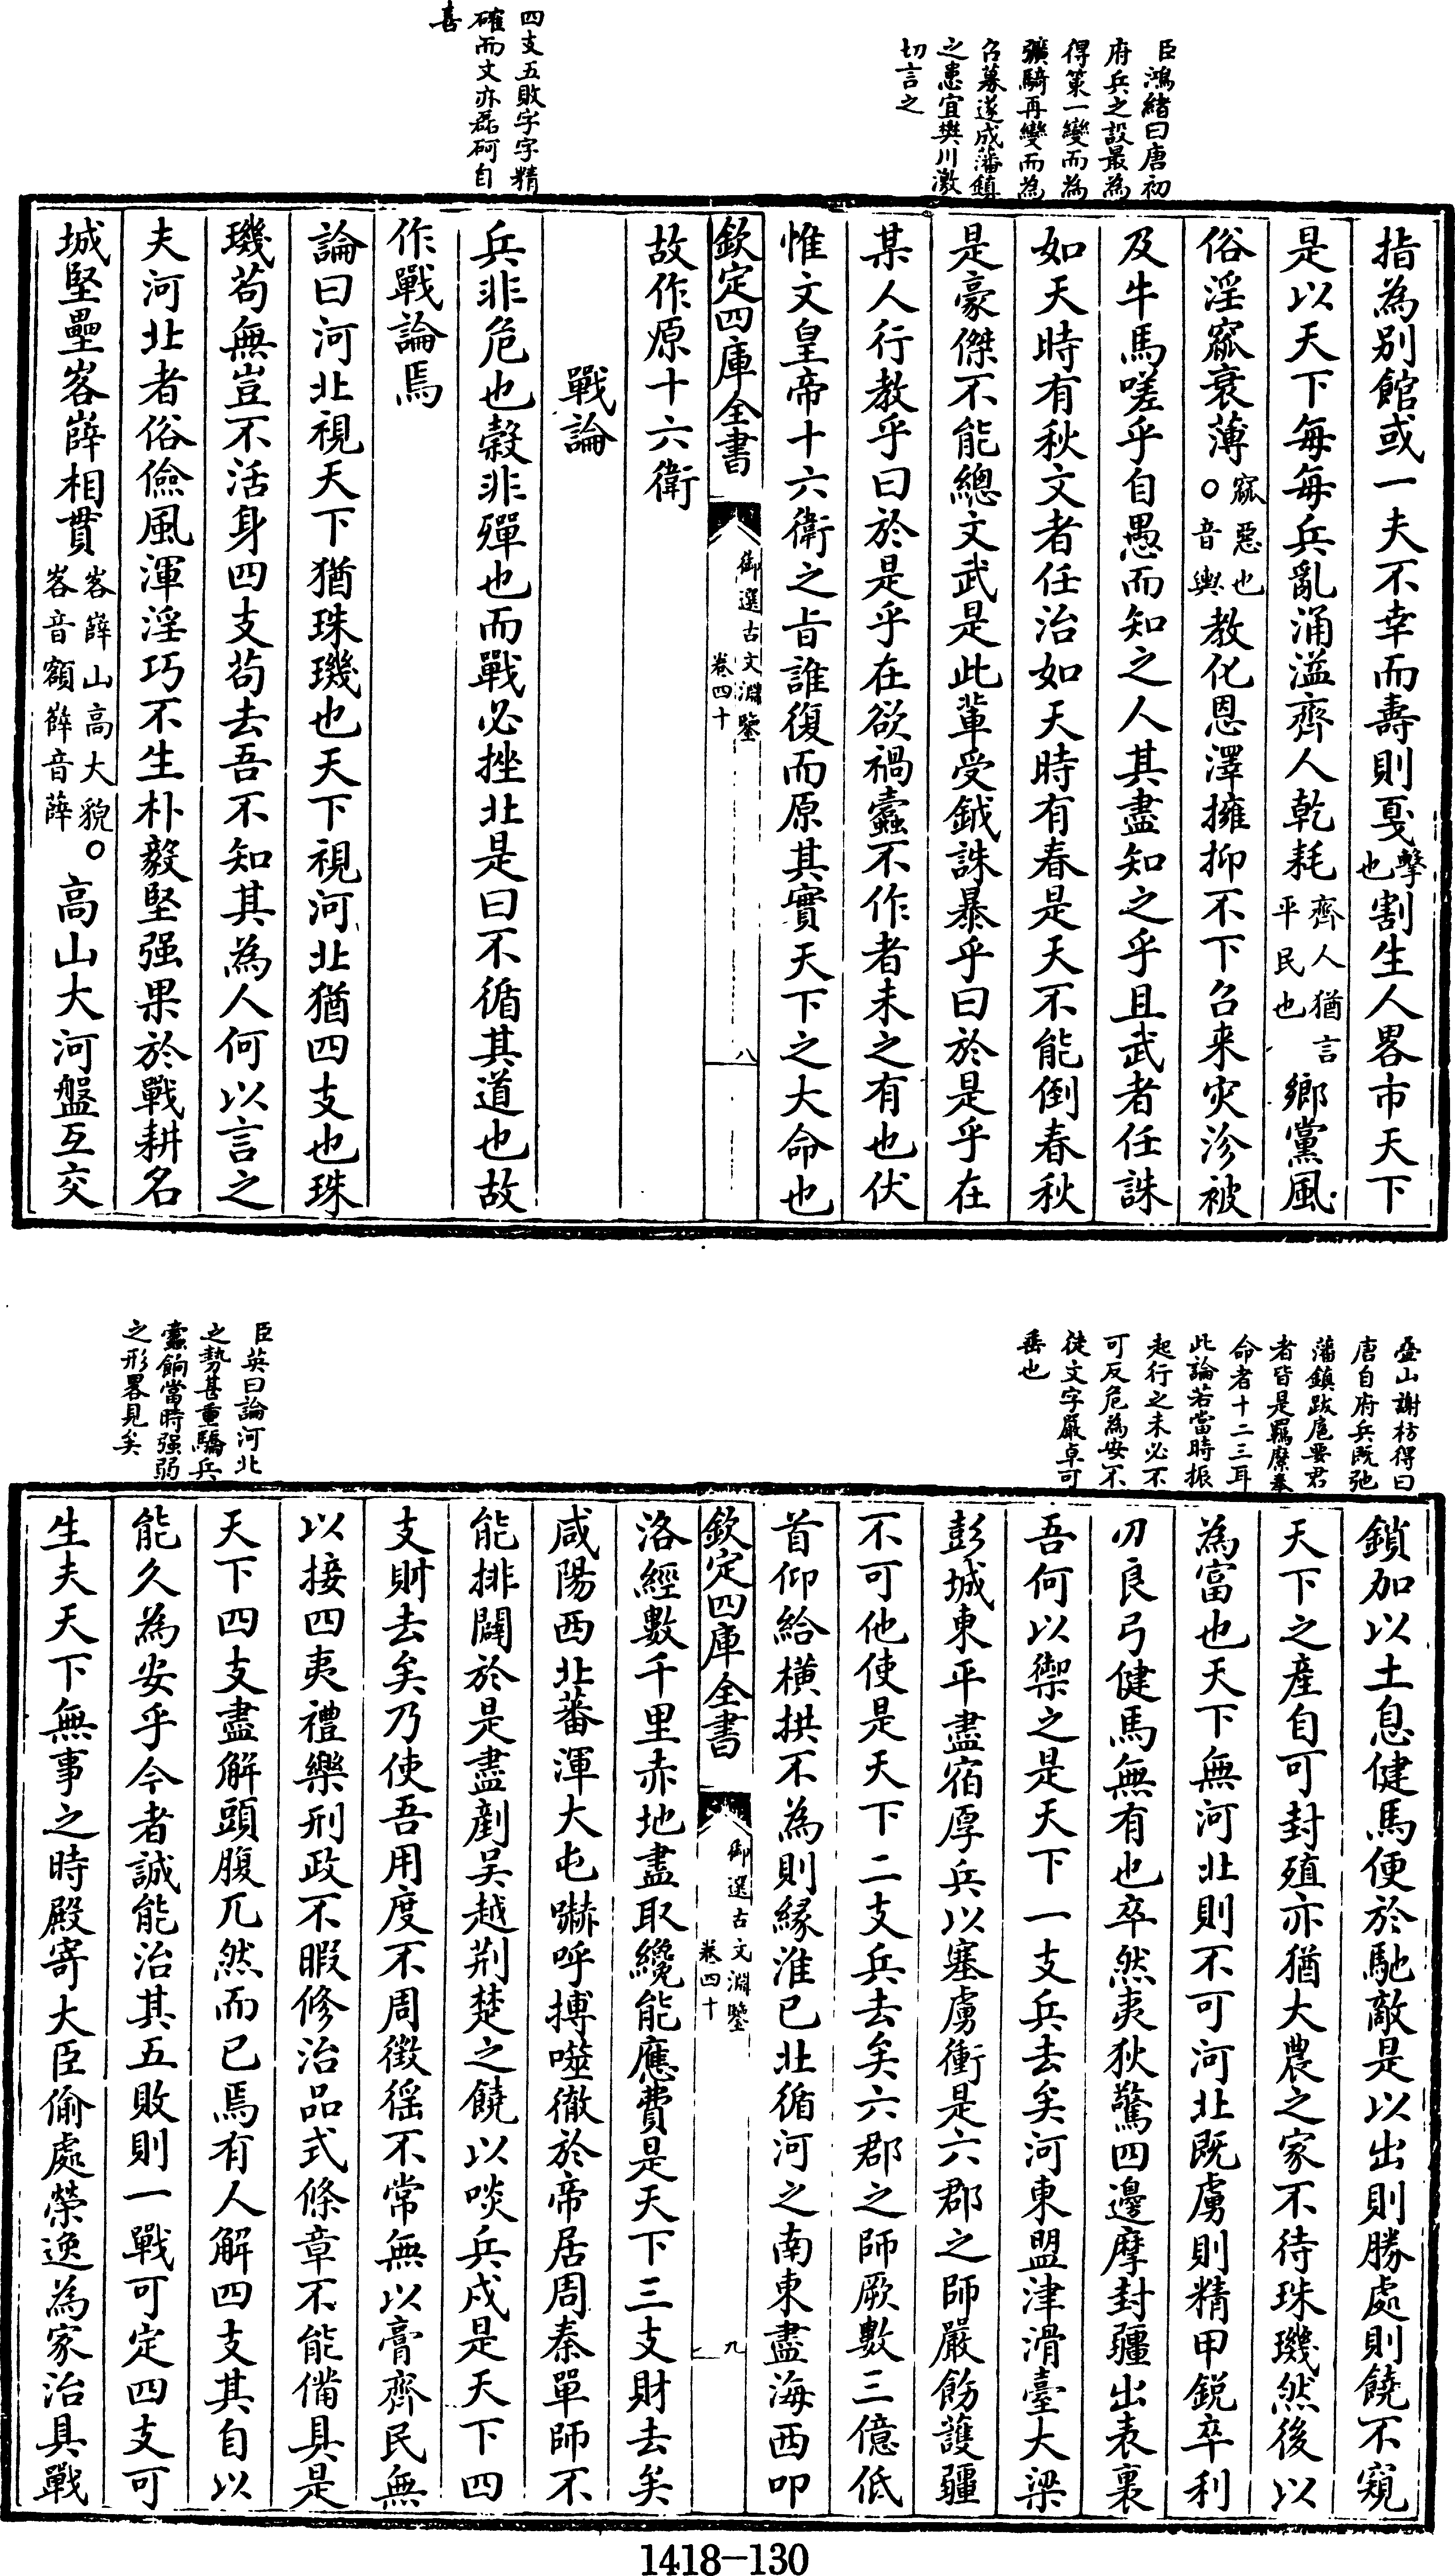 臣鴻緒曰唐初
府兵之設最為
得策一變而為
彍騎再變而為
召募遂成藩鎮
之患宜樊川激
切言之
四支五敗字字精
確而文亦磊砢自
喜
指為别館或一夫不幸而壽則戛擊也割生人畧市天下
是以天下每每兵亂涌溢齊人乾耗齊人猶言平民也鄉黨風
俗淫窳衰薄窳惡也○音與教化恩澤擁抑不下召来灾沴被
及牛馬嗟乎自愚而知之人其盡知之乎且武者任誅
如天時有秋文者任治如天時有春是天不能倒春秋
是豪傑不能總文武是此輩受鉞誅暴乎曰於是乎在
某人行教乎曰於是乎在欲禍蠹不作者未之有也伏
惟文皇帝十六衛之㫖誰復而原其實天下之大命也
欽定四庫全書 御選古文淵鑒 卷四十 八
故作原十六衛
戰論
兵非危也榖非殫也而戰必挫北是曰不循其道也故
作戰論焉
論曰河北視天下猶珠璣也天下視河北猶四支也珠
璣苟無豈不活身四支苟去吾不知其為人何以言之
夫河北者俗儉風渾淫巧不生朴毅堅强果於戰耕名
城堅壘峉嶭相貫峉嶭山高大貌○峉音額嶭音薛高山大河盤互交
叠山謝枋得曰
唐自府兵既弛
藩鎮跋扈要君
者皆是羈縻奉
命者十二三耳
此論若當時振
起行之未必不
可反危為安不
徒文字嚴卓可
垂也
臣英曰論河北
之勢甚重驕兵
蠹餉當時强弱
之形畧見矣
鎖加以土息健馬便於馳敵是以出則勝處則饒不窺
天下之産自可封殖亦猶大農之家不待珠璣然後以
為富也天下無河北則不可河北既虜則精甲鋭卒利
刀良弓健馬無有也卒然夷狄驚四邊摩封疆出表裏
吾何以禦之是天下一支兵去矣河東盟津滑臺大梁
彭城東平盡宿厚兵以塞虜衝是六郡之師嚴飭護疆
不可他使是天下二支兵去矣六郡之師厥數三億低
首仰給横拱不為則縁淮已北循河之南東盡海西叩
欽定四庫全書 御選古文淵鑒 卷四十 九
洛經數千里赤地盡取纔能應費是天下三支財去矣
咸陽西北蕃渾大屯嚇呼搏噬徹於帝居周秦單師不
能排闢於是盡剷吴越荆楚之饒以啖兵戍是天下四
支財去矣乃使吾用度不周徴徭不常無以膏齊民無
以接四夷禮樂刑政不暇修治品式條章不能備具是
天下四支盡解頭腹兀然而已焉有人解四支其自以
能久為安乎今者誠能治其五敗則一戰可定四支可
生夫天下無事之時殿寄大臣偷處榮逸為家治具戰
1418-130